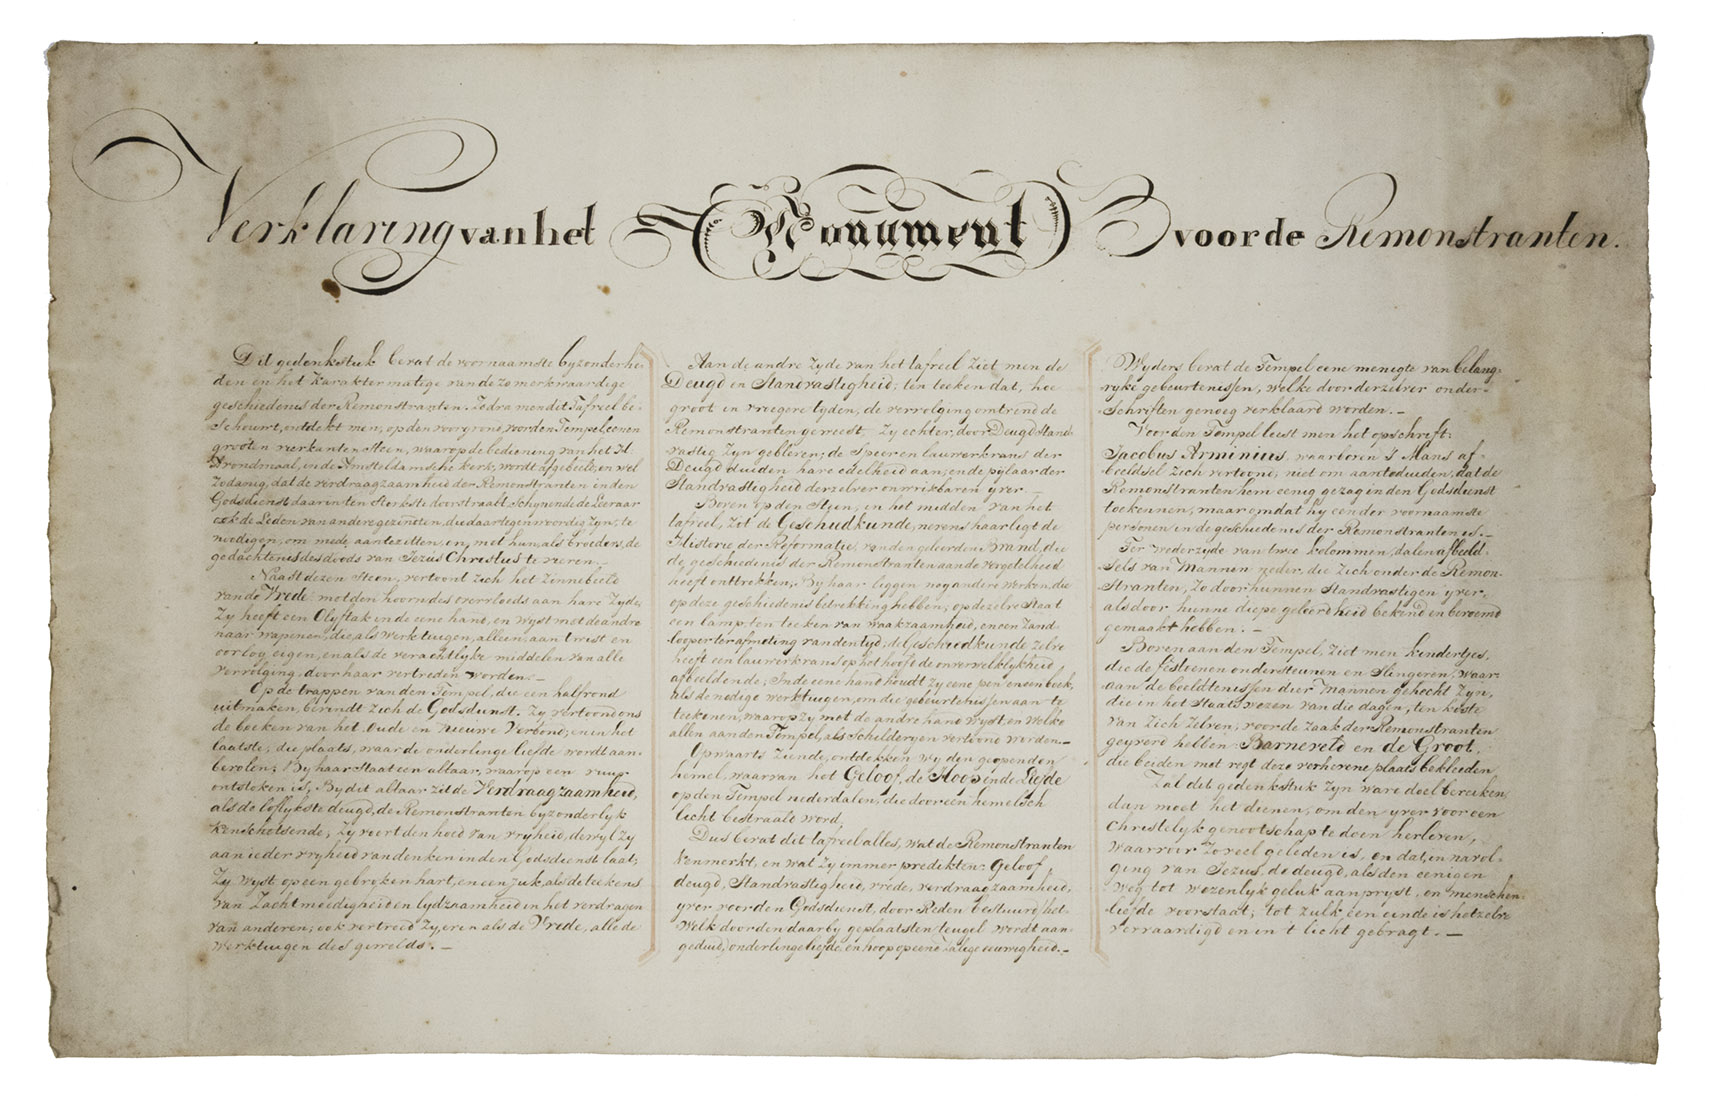 Verklaring van het Monument voor de Remonstranten.
Dit gedenkstuk bevat de voornaamste byzonderhe-
den en het karaktermatige van de zo merkwaardige
geschiedenis der Remonstranten. Zodra men dit Tafreel be-
schouwt, ontdekt men, op den voorgrond, voor den Tempel, eenen
grooten vierkanten steen, waarop de bediening van het H.
Avondmaal, in de Amsteldamsche kerk, wordt afgebeeld, en wel
zodanig, dat de verdraagzaamheid der Remonstranten in den
Godsdienst daarin ten sterkste doorstraalt. Schynende de Leeraar
ook de Leden van andere gezintten, die daar tegenwoordig zyn, te
noodigen, om mede aantezitten, en, met hun, als broeders, de
gedachtenis des doods van Jezus Christus te vieren. —
Naast dezen steen, vertoont zich het zinnebeeld
van de Vrede, met den hoorn des overvloeds aan hare zyde,
Zy heeft een Olyftak in de eene hand, en wyst met de andre
naar wapenen, die, als werktuigen, alleen aan twist en
oorlog eigen, en als de verachtlyke middelen van alle
vervolging, door haar vertreden worden. —
Op de trappen van den Tempel, die een halfrond
uitmaken, bevindt zich de Godsdienst. Zy vertoond ons
de boeken van het Oude en Nieuwe Verbond; en in het
laatste, die plaats, waar de onderlinge liefde wordt aan-
bevolen; By haar staat een altaar, waarop een vuur
ontstoken is, By dit altaar zit de Verdraagzaamheid,
als de loflykste deugd, de Remonstranten byzonderlyk
kenschetsende; Zy voert den hoed van vryheid, dewyl zy
aan ieder vryheid van denken in den Godsdienst laat;
Zy wyst op een gebroken hart, en een juk, als de teekens
van Zachtmoedigheid en lydzaamheid in het verdragen
van anderen; ook vertreed zy, even als de Vrede, alle de
werktuigen des gewelds. —
Aan de andre zyde van het tafreel ziet men de
Deugd en Standvastigheid; ten teeken dat, hoe
groot in vroegere tyden, de vervolging omtrend de
Remonstranten geweest, Zy echter, door Deugd stand-
vastig zyn gebleven; de Speer en lauwerkrans der
Deugd duiden hare edelheid aan; en de pylaar der
Standvastigheid derzelver onwrikbaren yver. —
Boven op den Steen, en in het midden van het
tafreel, zit de Geschiedkunde, nevens haar ligt de
Historie der Reformatie, van den geleerden Brand, die
de geschiedenis der Remonstranten aan de vergetelheid
heeft onttrokken, By haar liggen nog andere werken, die
op deze geschiedenis betrekking hebben; op dezelve staat
een lamp, ten teeken van waakzaamheid, en een Zand-
looper ter afmeting van den tyd; de Geschiedkunde zelve
heeft een lauwerkrans op het hoofd, de onverwelkelykheid
afbeeldende; In de eene hand houdt zy eene pen en een boek,
als de nodige werktuigen, om die gebeurtenissen aan te
teekenen, waarop zy met de andre hand wyst, en welke
allen aan den Tempel, als schilderyen vertoond worden. —
Opwaarts ziende, ontdekken wy den geopenden
hemel, waarvan het Geloof, de Hoop en de Liefde
op den Tempel nederdalen, die door een hemelsch
licht bestraald word,
Dus bevat dit tafreel alles, wat de Remonstranten
kenmerkt, en wat zy immer predikten: Geloof,
deugd, Standvastigheid, vrede, verdraagzaamheid,
yver voor den Godsdienst, door Reden bestuurd, het-
welk door den daarby geplaatsten teugel wordt aan-
geduid, onderlinge liefde, en hoop op eene zalige eeuwigheid. —
Wyders bevat de Tempel eene menigte van belang-
ryke gebeurtenissen, welke door derzelver onder-
schriften genoeg verklaard worden. —
Voor den Tempel leest men het opschrift:
Jacobus Arminius, waarboven 's Mans af-
beeldsel zich vertoont, niet om aanteduiden, dat de
Remonstranten hem eenig gezag in den Godsdienst
toekennen, maar omdat hy een der voornaamste
personen in de geschiedenis der Remonstranten is. —
Ter wederzyde van twee kolommen, dalen afbeeld-
sels van Mannen neder, die zich onder de Remon-
stranten, zo door hunnen standvastigen yver
als door hunne diepe geleerdheid bekend en beroemd
gemaakt hebben. —
Boven aan den Tempel, ziet men kindertjes,
die de festoenen ondersteunen en slingeren, waar-
aan de beeldtenissen dier Mannen gehecht zyn,
die in het Staatswezen van die dagen, ten koste
van zich zelven, voor de zaak der Remonstranten
geyverd hebben: Barneveld en de Groot,
die beiden met regt deze verhevene plaats bekleeden.
Zal dit gedenkstuk zyn ware doel bereiken,
dan moet het dienen, om den yver voor een
Christelyk genootschap te doen herleven,
waarvoor zoveel geleden is, en dat, in navol-
ging van Jezus, de deugd, als den eenigen
weg tot wezenlyk geluk aanpryst, en menschen-
liefde voorstaat; tot zulk een einde is hetzelve
vervaardigd en in 't licht gebragt. —